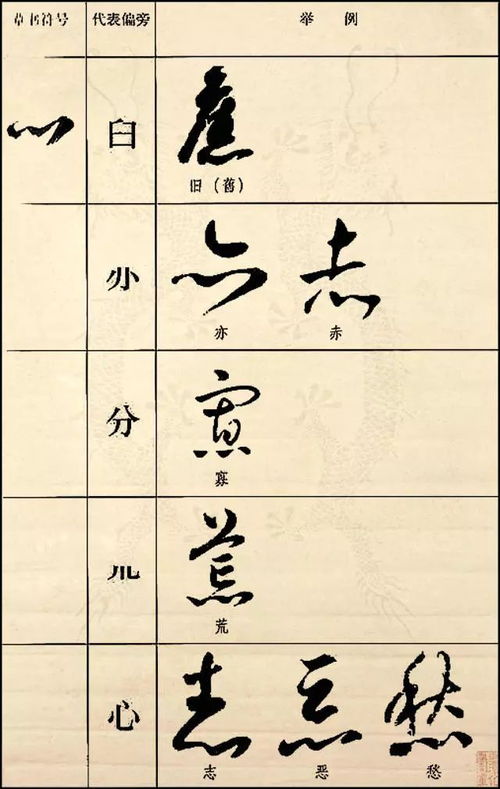 草书符号 代表偏旁 举例
臼
旧（舊）
亦 赤
分
寡
荒
心
志 恶 愁